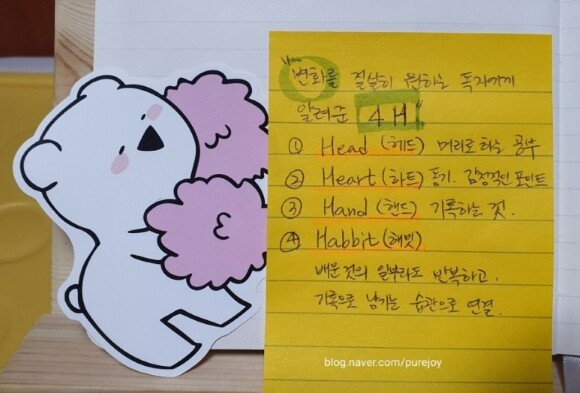 "변화를 절실히 원하는 독자에게
알려준 4H"
① Head (헤드) 머리로 하는 공부
② Heart (하트) 동기. 감정적인 포인트
③ Hand (핸드) 기록하는 것.
④ Habbit (해빗)
배운 것의 일부라도 반복하고.
기록으로 남기는 습관으로 연결.
blog.naver.com/purejoy